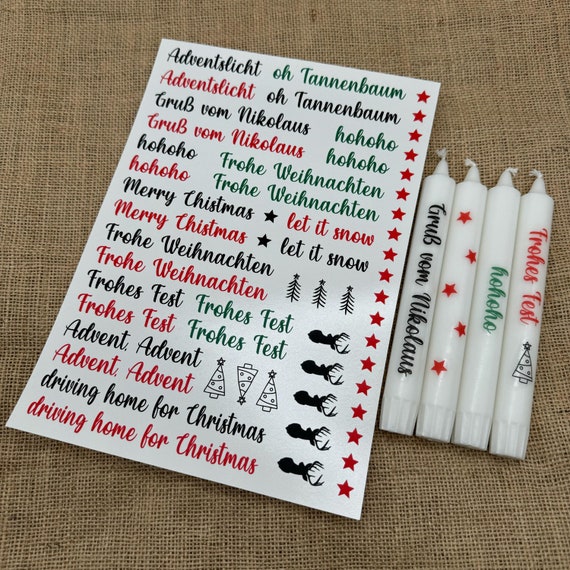 Adventslicht oh Tannenbaum
Adventslicht oh Tannenbaum
Gruß vom Nikolaus hohoho
Gruß vom Nikolaus hohoho
hohoho Frohe Weihnachten
hohoho Frohe Weihnachten
Merry Chistmas let it snow
Merry Chistmas let it snow
Frohe Weihnachten
Frohe Weihnachten
Frohes Fest Frohes Fest
Frohes Fest Frohes Fest
Advent, Advent
Advent, Advent
driving home for Christmas
driving home for Christmas
Gruß vom Nikolaus
hohoho
Frohes Fest